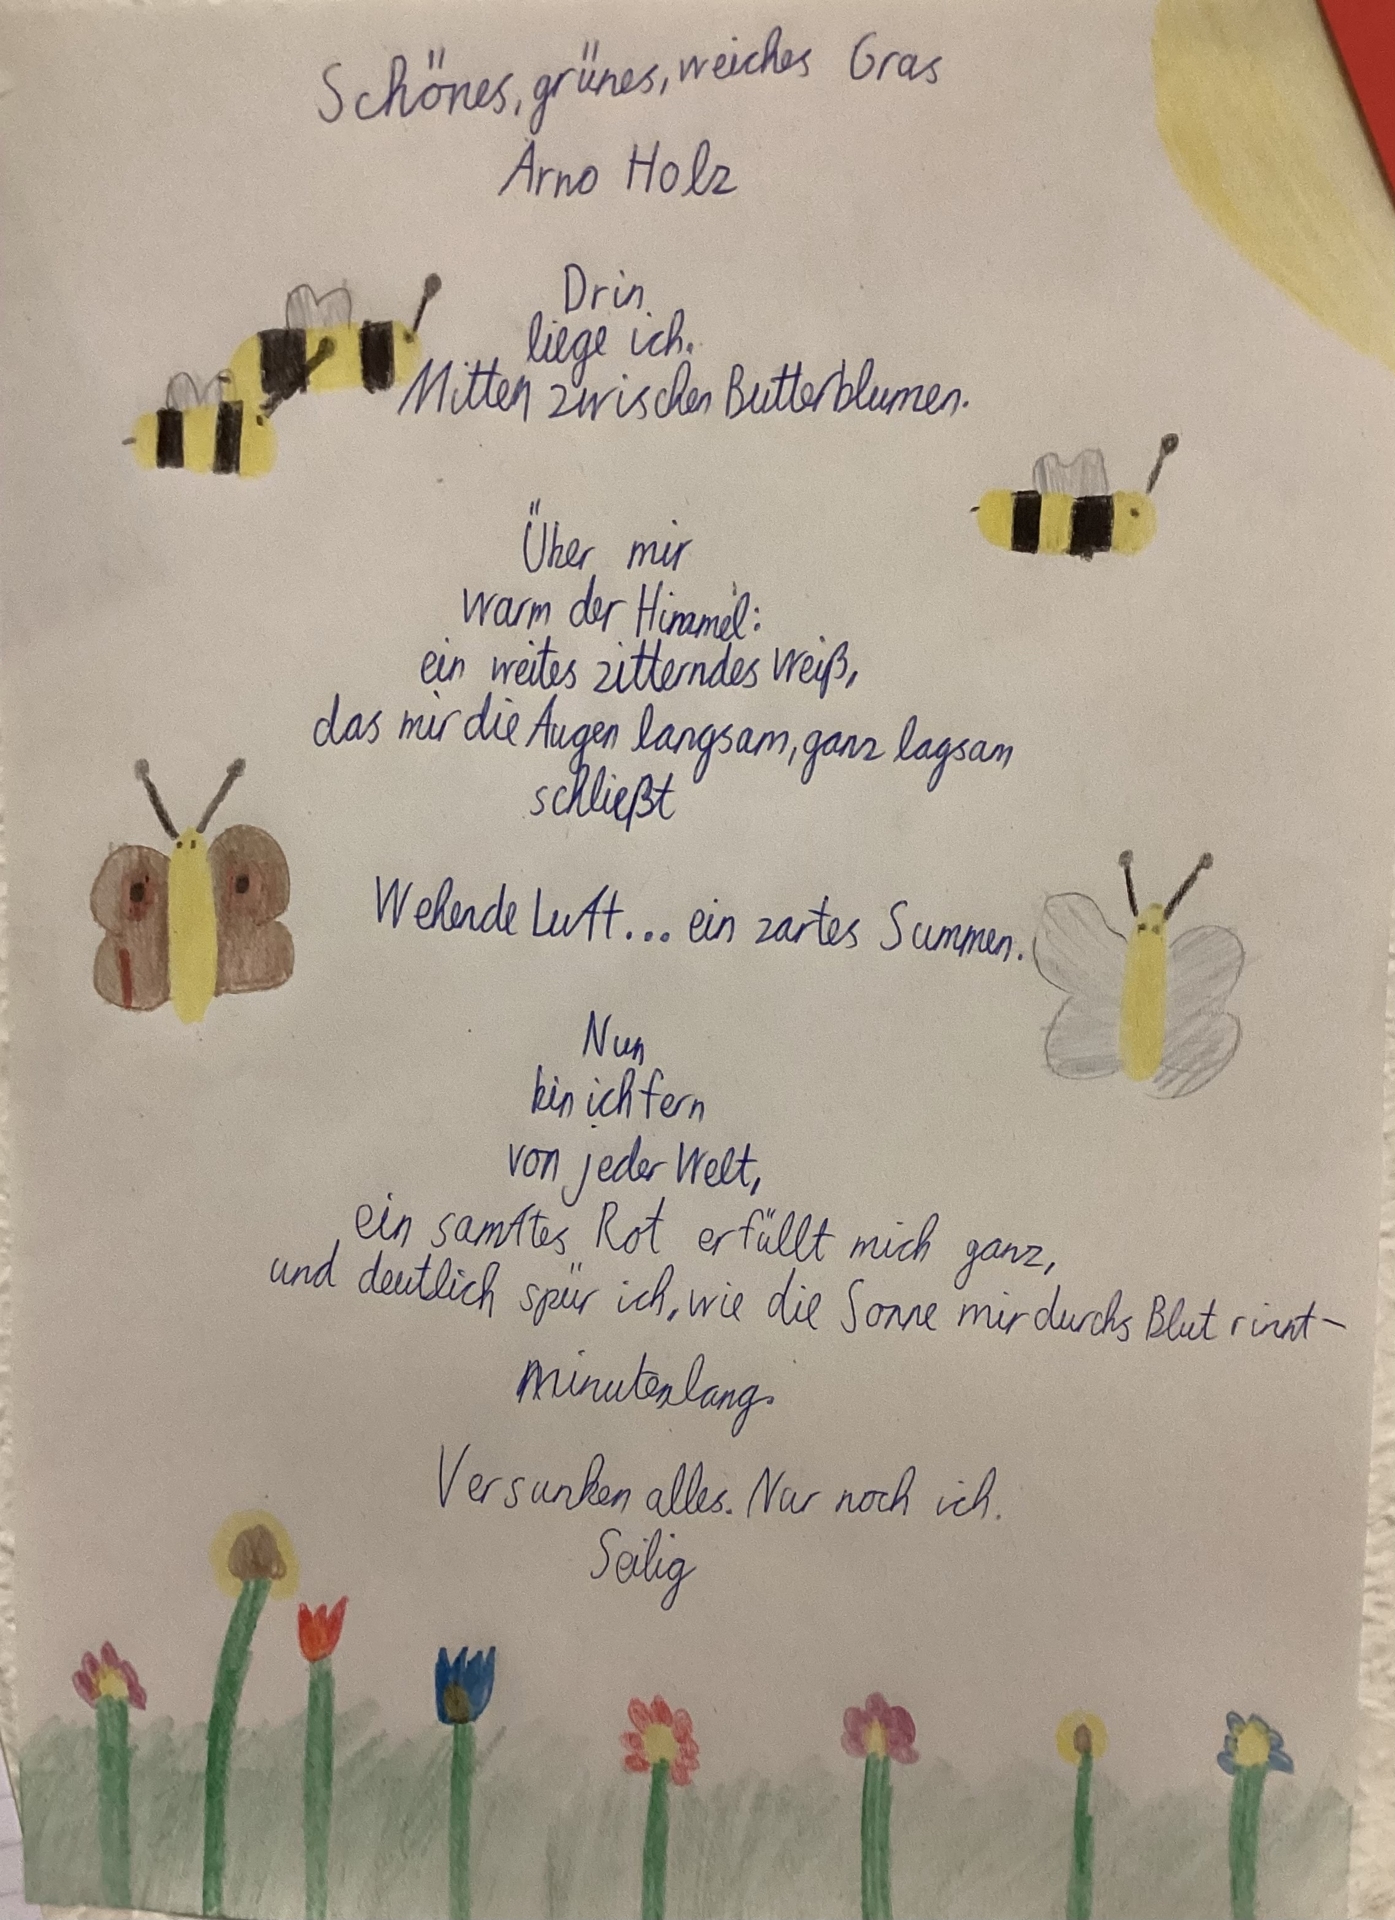 Schönes, grünes, weiches Gras
Arno Holz
Drin
liege ich.
Mitten zwischen Butterblumen.
Über mir
warm der Himmel:
ein weites zitterndes Weiß,
das mir die Augen langsam, ganz lagsam
schließt
Wehende Luft... ein zartes Summen.
Nun
bin ich fern
von jeder Welt,
ein samftes Rot erfüllt mich ganz,
und deutlich spür ich, wie die Sonne mir durchs Blut rinnt-
minutenlang.
Versunken alles. Nur noch ich.
Seilig